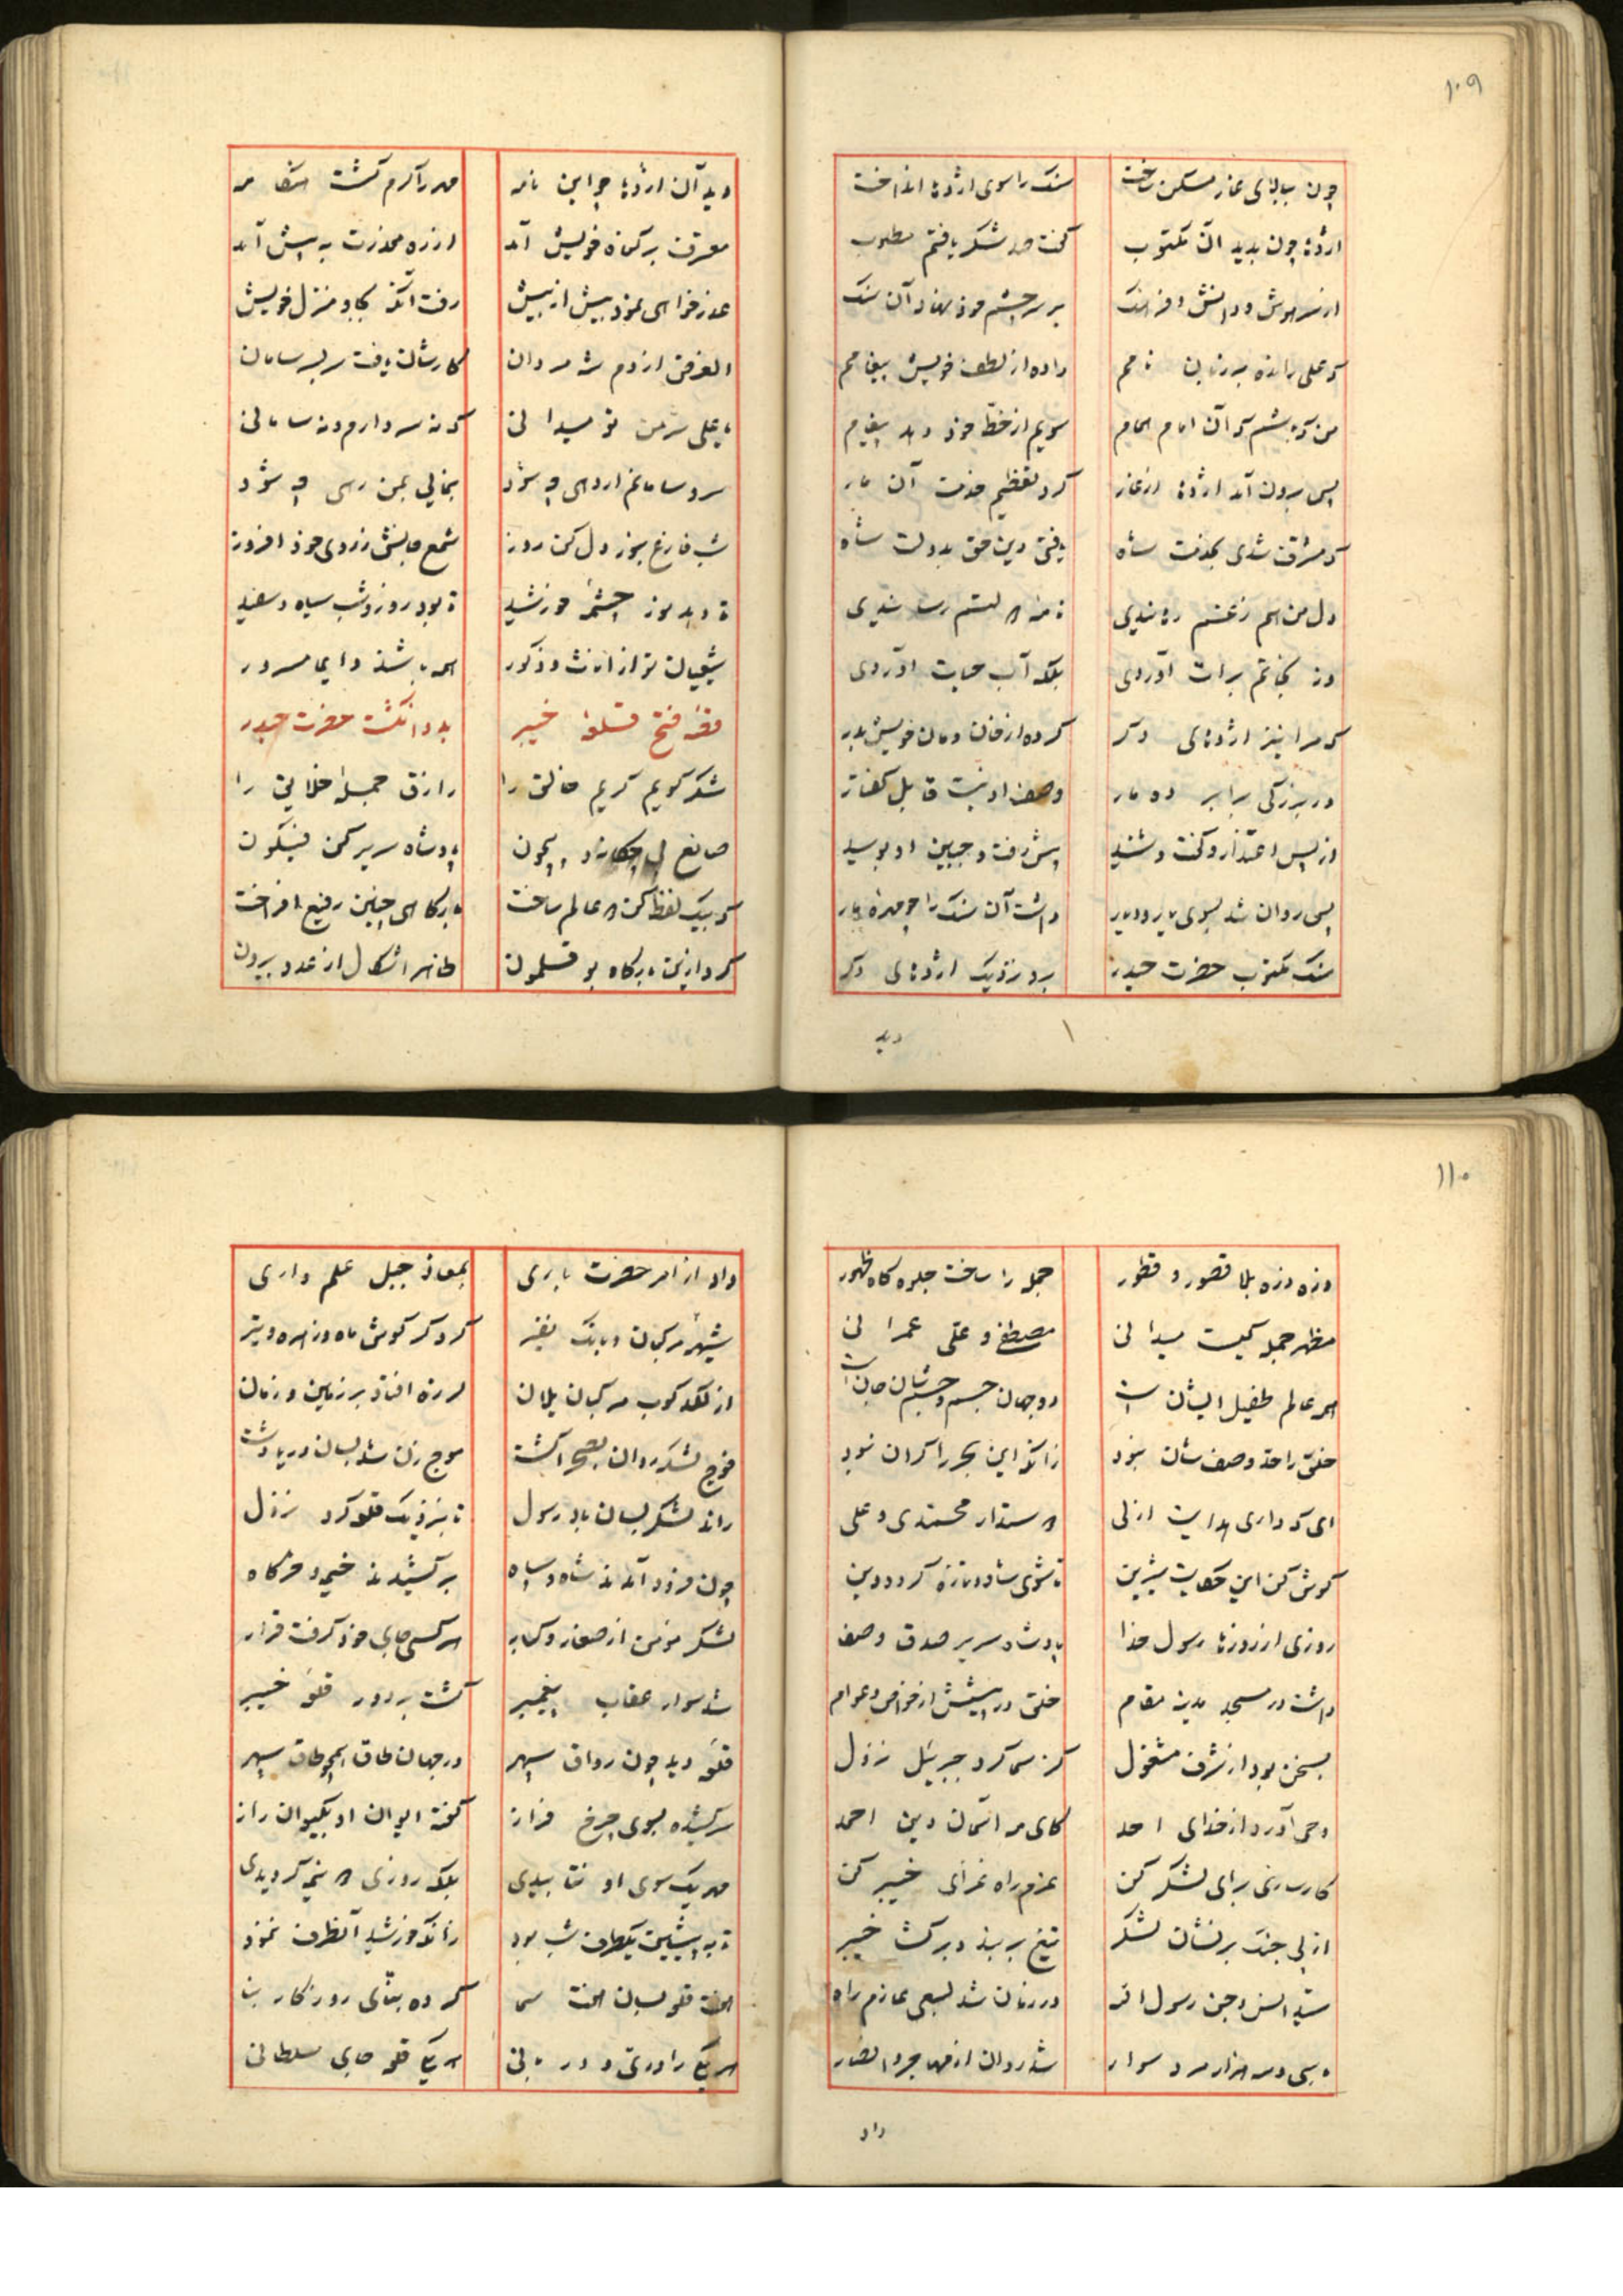 ۱۰۹
چون ببالای غار مسکن ساخت سنک را سوی اژدها انداخت
اژدها چون بدید آن مکتوب گفت صد شکر یافتم مطلوب
از سر هوش و دانش و فرهنک بر سر چشم خود نهاد آن سنک
که علی رانده بر زبان نامم داده از لطف خویش پیغامم
من که باشم که آن امام همام سویم از خط خود دهد پیغام
پس برون آمد اژدها از غار کرد تعظیم خدمت آن مار
که مشرف شدی بخدمت شاه یافتی دین حق بدولت شاه
دل من هم ز غم رهانیدی نامه هم رسانیدی
نجاتم برات آوردی بلکه آب حیات آوردی
که مرا نیز اژدهای دکر کرده از خان و مان خویش بدر
در بزرکی برابر ده مار وصف او نیست قابل کفتار
از پس اعتذار و کفت و شنید پیش رفت و جبین او بوسید
پس روان شد بسوی یار و دیار داشت آن سنک را چو مهره مار
سنک مکتوب حضرت حیدر برد نزدیک اژدهای دکر
دید
دید آن اژدها چو این نامه
معترف بر کناه خویش آمد از ره معذرت به پیش آمد
عذر خواهی نمود بیش از بیش رفت آنکه بجا و منزل خویش
الغرض از دم شه مردان کارشان یافت سر بسر سامان
یا علی سر من تو میدانی که نه سر دارم و نه سامانی
سر و سامانم ار دهی چه شود بنمایی بمن رهی چه شود
شب فارغ بروز دل کن روز شمع جانش ز روی خود افروز
تا دهد نور چشمهٔ خورشید تا بود روز و شب سیاه و سفید
شیعیان تو از اناث و ذکور همه باشند دایما مسرور
قصهٔ فتح قلعهٔ خیبر بدو انگشت حضرت حیدر
شکر کویم کریم خالق را رازق جملهٔ خلایق را
صانع بی چون پادشاه سریر کن فیکون
که بیک لفظ کن دو عالم ساخت بارکاهی چنین رفیع افراخت
کرد ازین بارکاه بوقلمون ظاهر اشکال از عدد بیرون
۱۱۰
ذره ذره بلا قصور و فطور جمله را ساخت جلوه کاه ظهور
مظهر جمله کیست میدانی مصطفی و علی عمرانی
همه عالم طفیل ایشان است دو جهان جسم و جسم شان جان است
خلق را حد وصف شان نبود زانکه این بحر را کران نبود
ای که داری هدایت ازلی دوستدار محمدی و علی
کوش کن این حکایت شیرین تا شوی شاد و تازه کردد دین
روزی از روزها رسول خدا پادشاه سریر صدق و صفا
داشت در مسجد مدینه مقام خلق در پیشش از خواص و عوام
بسخن بود از شرف مشغول کز سما کرد جبرییل نزول
وحی آورد از خدای احد کای مه آسمان دین احمد
کارسازی برای لشکر کن عزم راه غزای خیبر کن
از پی جنک بر نشان لشکر تیغ بر بند و بر کشا خیبر
سید انس و جن رسول اله در زمان شد بسعی عازم راه
با سی و سه هزار مرد سوار شد روان از مهاجر و انصار
داد
داد از امر حضرت باری بمعاذ جبل علم داری
شیههٔ مرکبان و بانک نفیر کرد کر کوش ماه و زهره و تیر
از لکد کوب مرکبان یلان لرزه افتاد بر زمین و زمان
فوج لشکر روان بصحرا کشت موج زن شد بسان دریا دشت
راند لشکر بسان باد رسول تا بنزدیک قلعه کرد نزول
چون فرود آمدند شاه و سپاه بر کشیدند خیمه و خرکاه
لشکر مؤمن از صغار و کبار هر کسی جای خود کرفت قرار
شد سوار عقاب پیغمبر کشت بر دور قلعهٔ خیبر
قلعهٔ دید چون رواق سپهر در جهان طاق همچو طاق سپهر
سر کشیده بسوی چرخ فراز کفته ایوان او بکیوان راز
مهر یک سوی او نتابیدی بلکه روزی دو نیمه کردیدی
تا به پیشین یکطرف شب بود زانکه خورشید آنطرف ننمود
هفت قلعه بسان هفت سما کرده بنای روزکار بنا
هر یکی را دری و دربانی هر یکی قلعه جای سلطانی